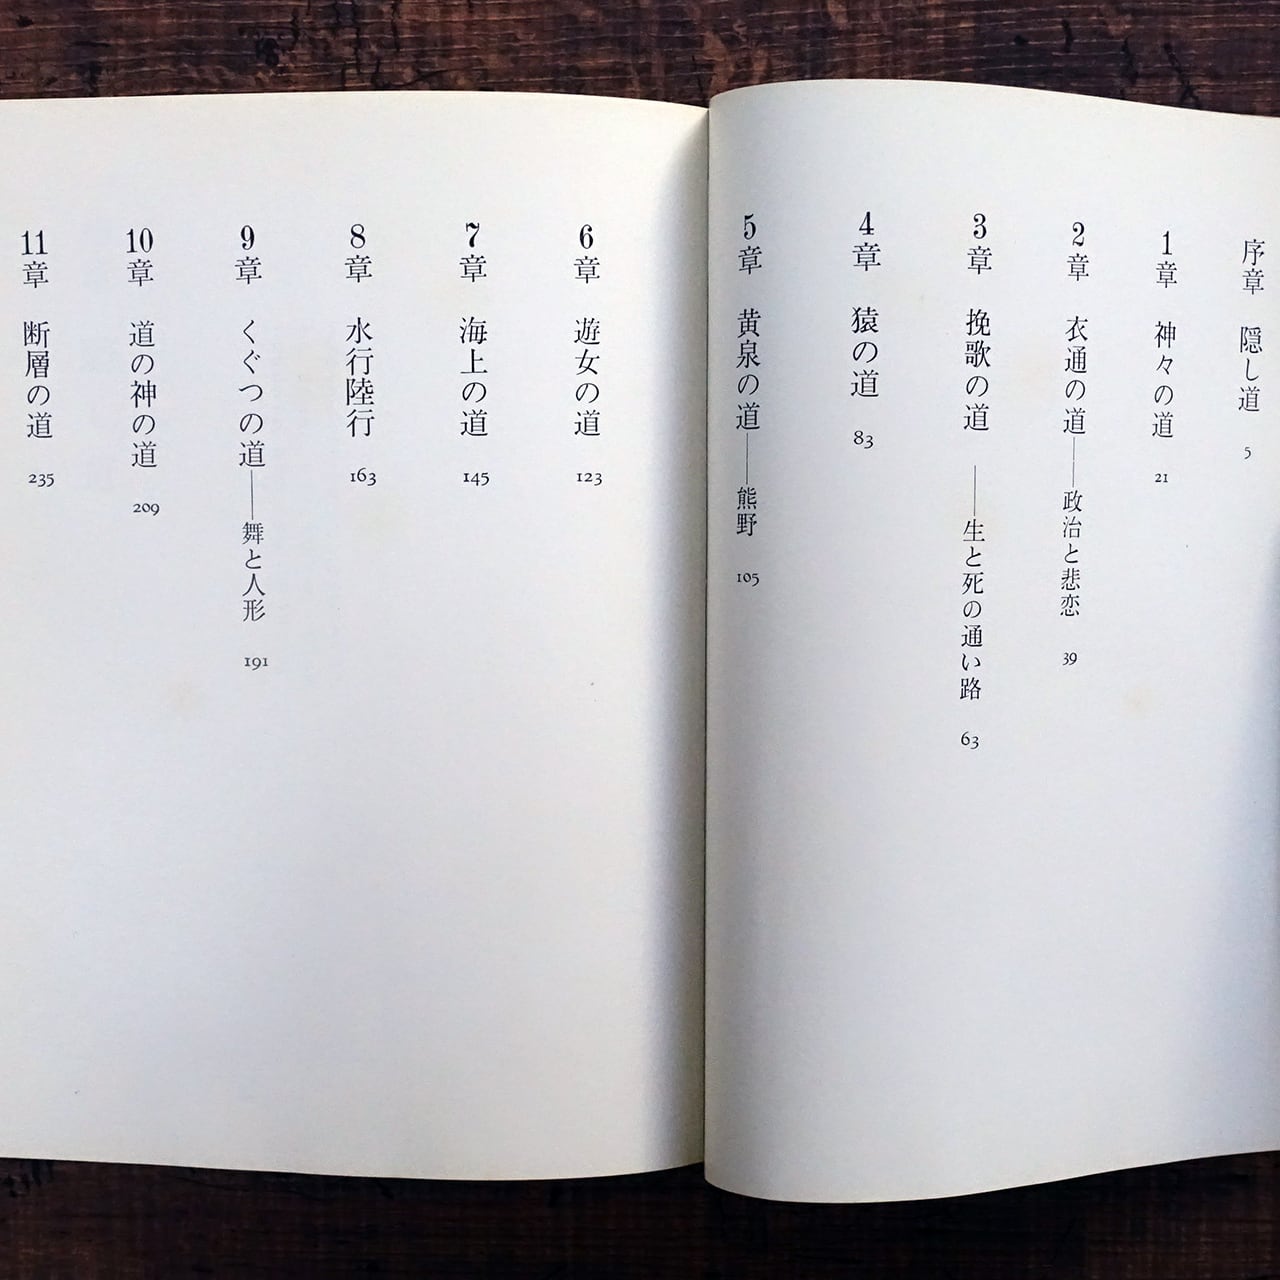 序章 隠し道 5
1章 神々の道 21
2章 衣通の道──政治と悲恋 39
3章 挽歌の道 ──生と死の通い路 63
4章 猿の道 83
5章 黄泉の道──熊野 105
6章 遊女の道 123
7章 海上の道 145
8章 水行陸行 163
9章 くぐつの道──舞と人形 191
10章 道の神の道 209
11章 断層の道 235